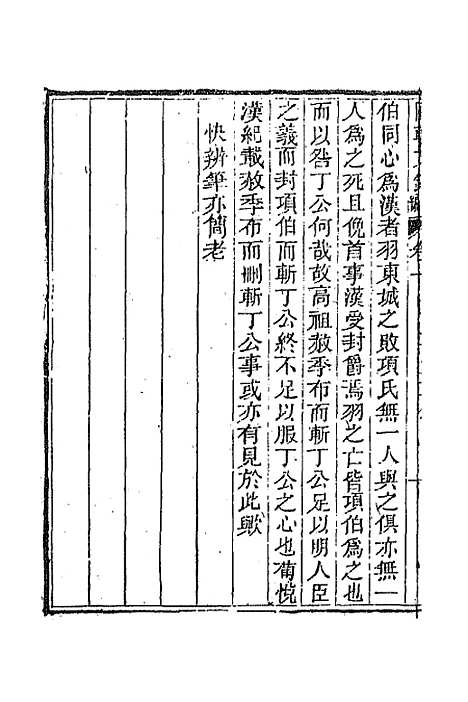 伯同心爲漢者羽東城之敗項氏無一人與之俱亦無一
人爲之死且俛首事漢受封爵焉羽之亡皆項伯爲之也
而以咎丁公何哉故高祖赦季布而斬丁公足以明人臣
之義而封項伯而斬丁公終不足以服丁公之心也荀悅
漢紀載赦季布而刪斬丁公事或亦有見於此歟
快辨筆亦簡老